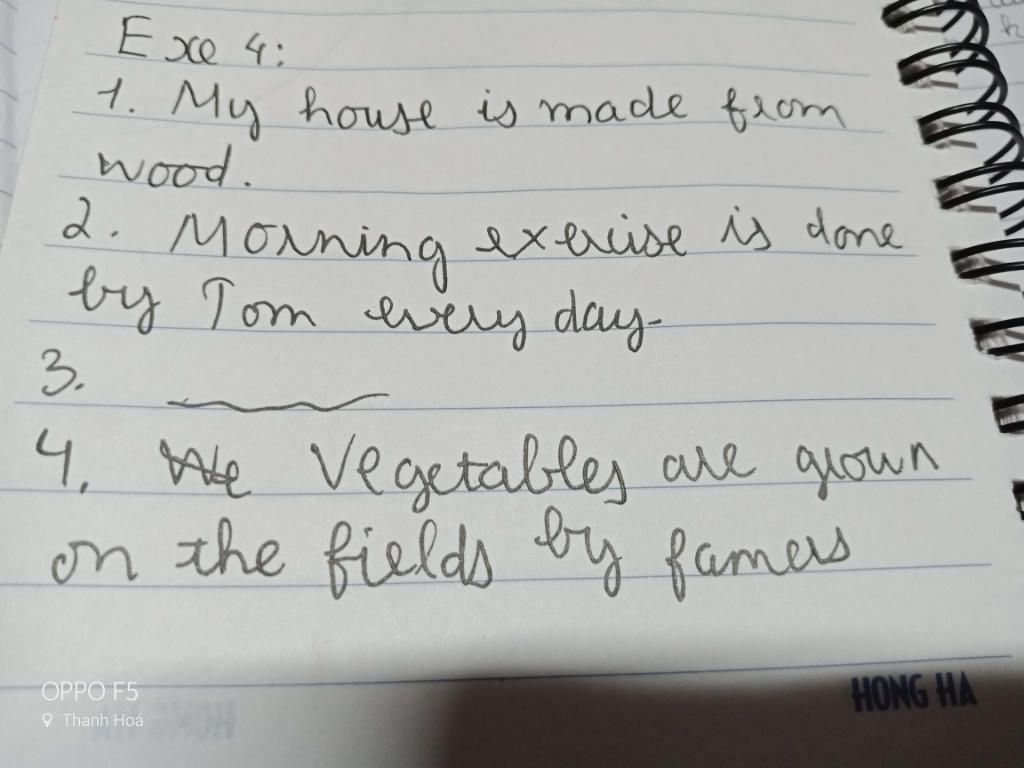 Exe 4:
1. My house is made from
wood.
2. Morning exercise is done
by Tom every day.
3.
4. We Vegetables are grown
on the fields by famers
HONG HA
OPPO F5
Thanh Hoá